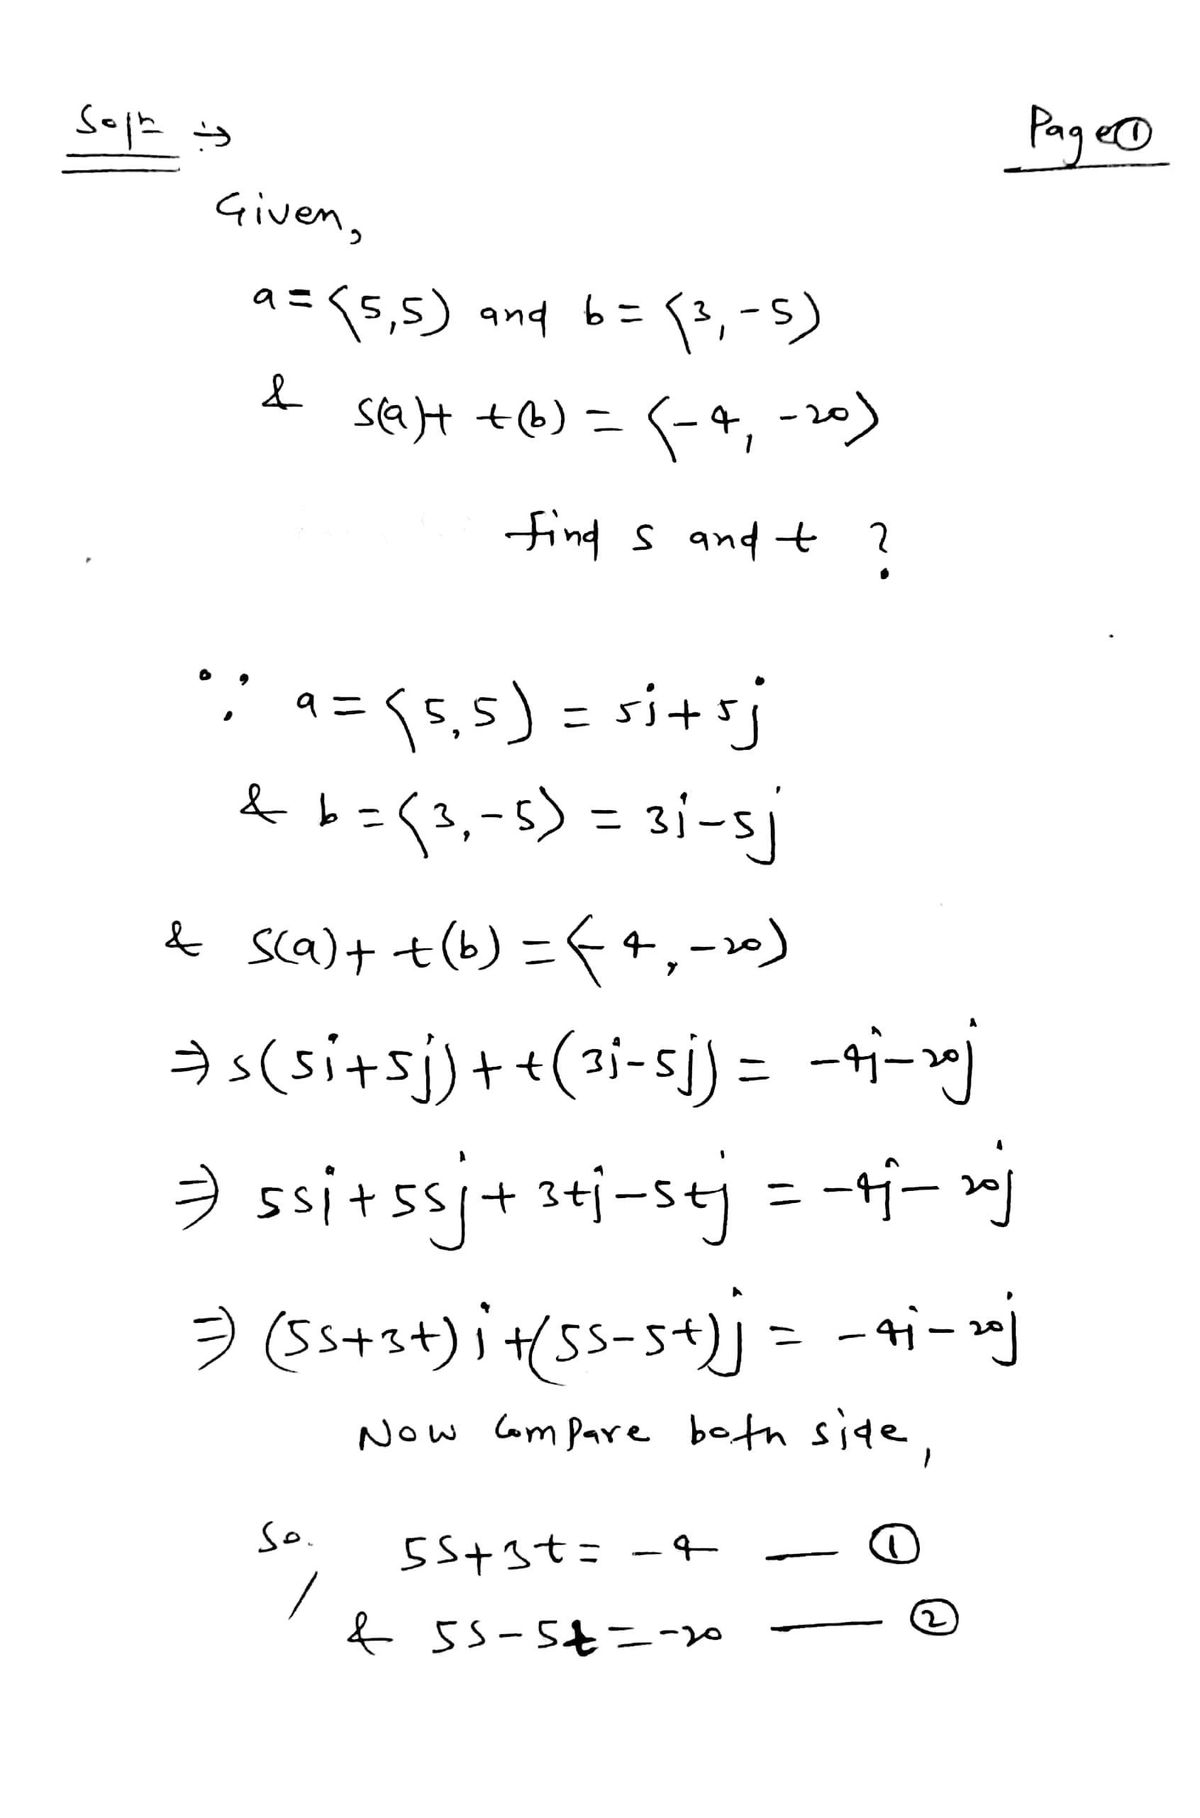 Solⁿ ⇒ Page ①
Given,
a = ⟨5,5⟩ and b = ⟨3,-5⟩
& s(a)+ t(b) = ⟨-4, -20⟩
find s and t ?
∵ a = ⟨5,5⟩ = 5i+5j
& b = ⟨3,-5⟩ = 3i-5j
& s(a)+ t(b) = ⟨-4,-20⟩
⇒ s(5i+5j)+t(3i-5j) = -4i-20j
⇒ 5si+5sj+3ti-5tj = -4i-20j
⇒ (5s+3t)i+(5s-5t)j = -4i-20j
Now Compare both side,
So, 5s+3t = -4 — ①
& 5s-5t = -20 — ②